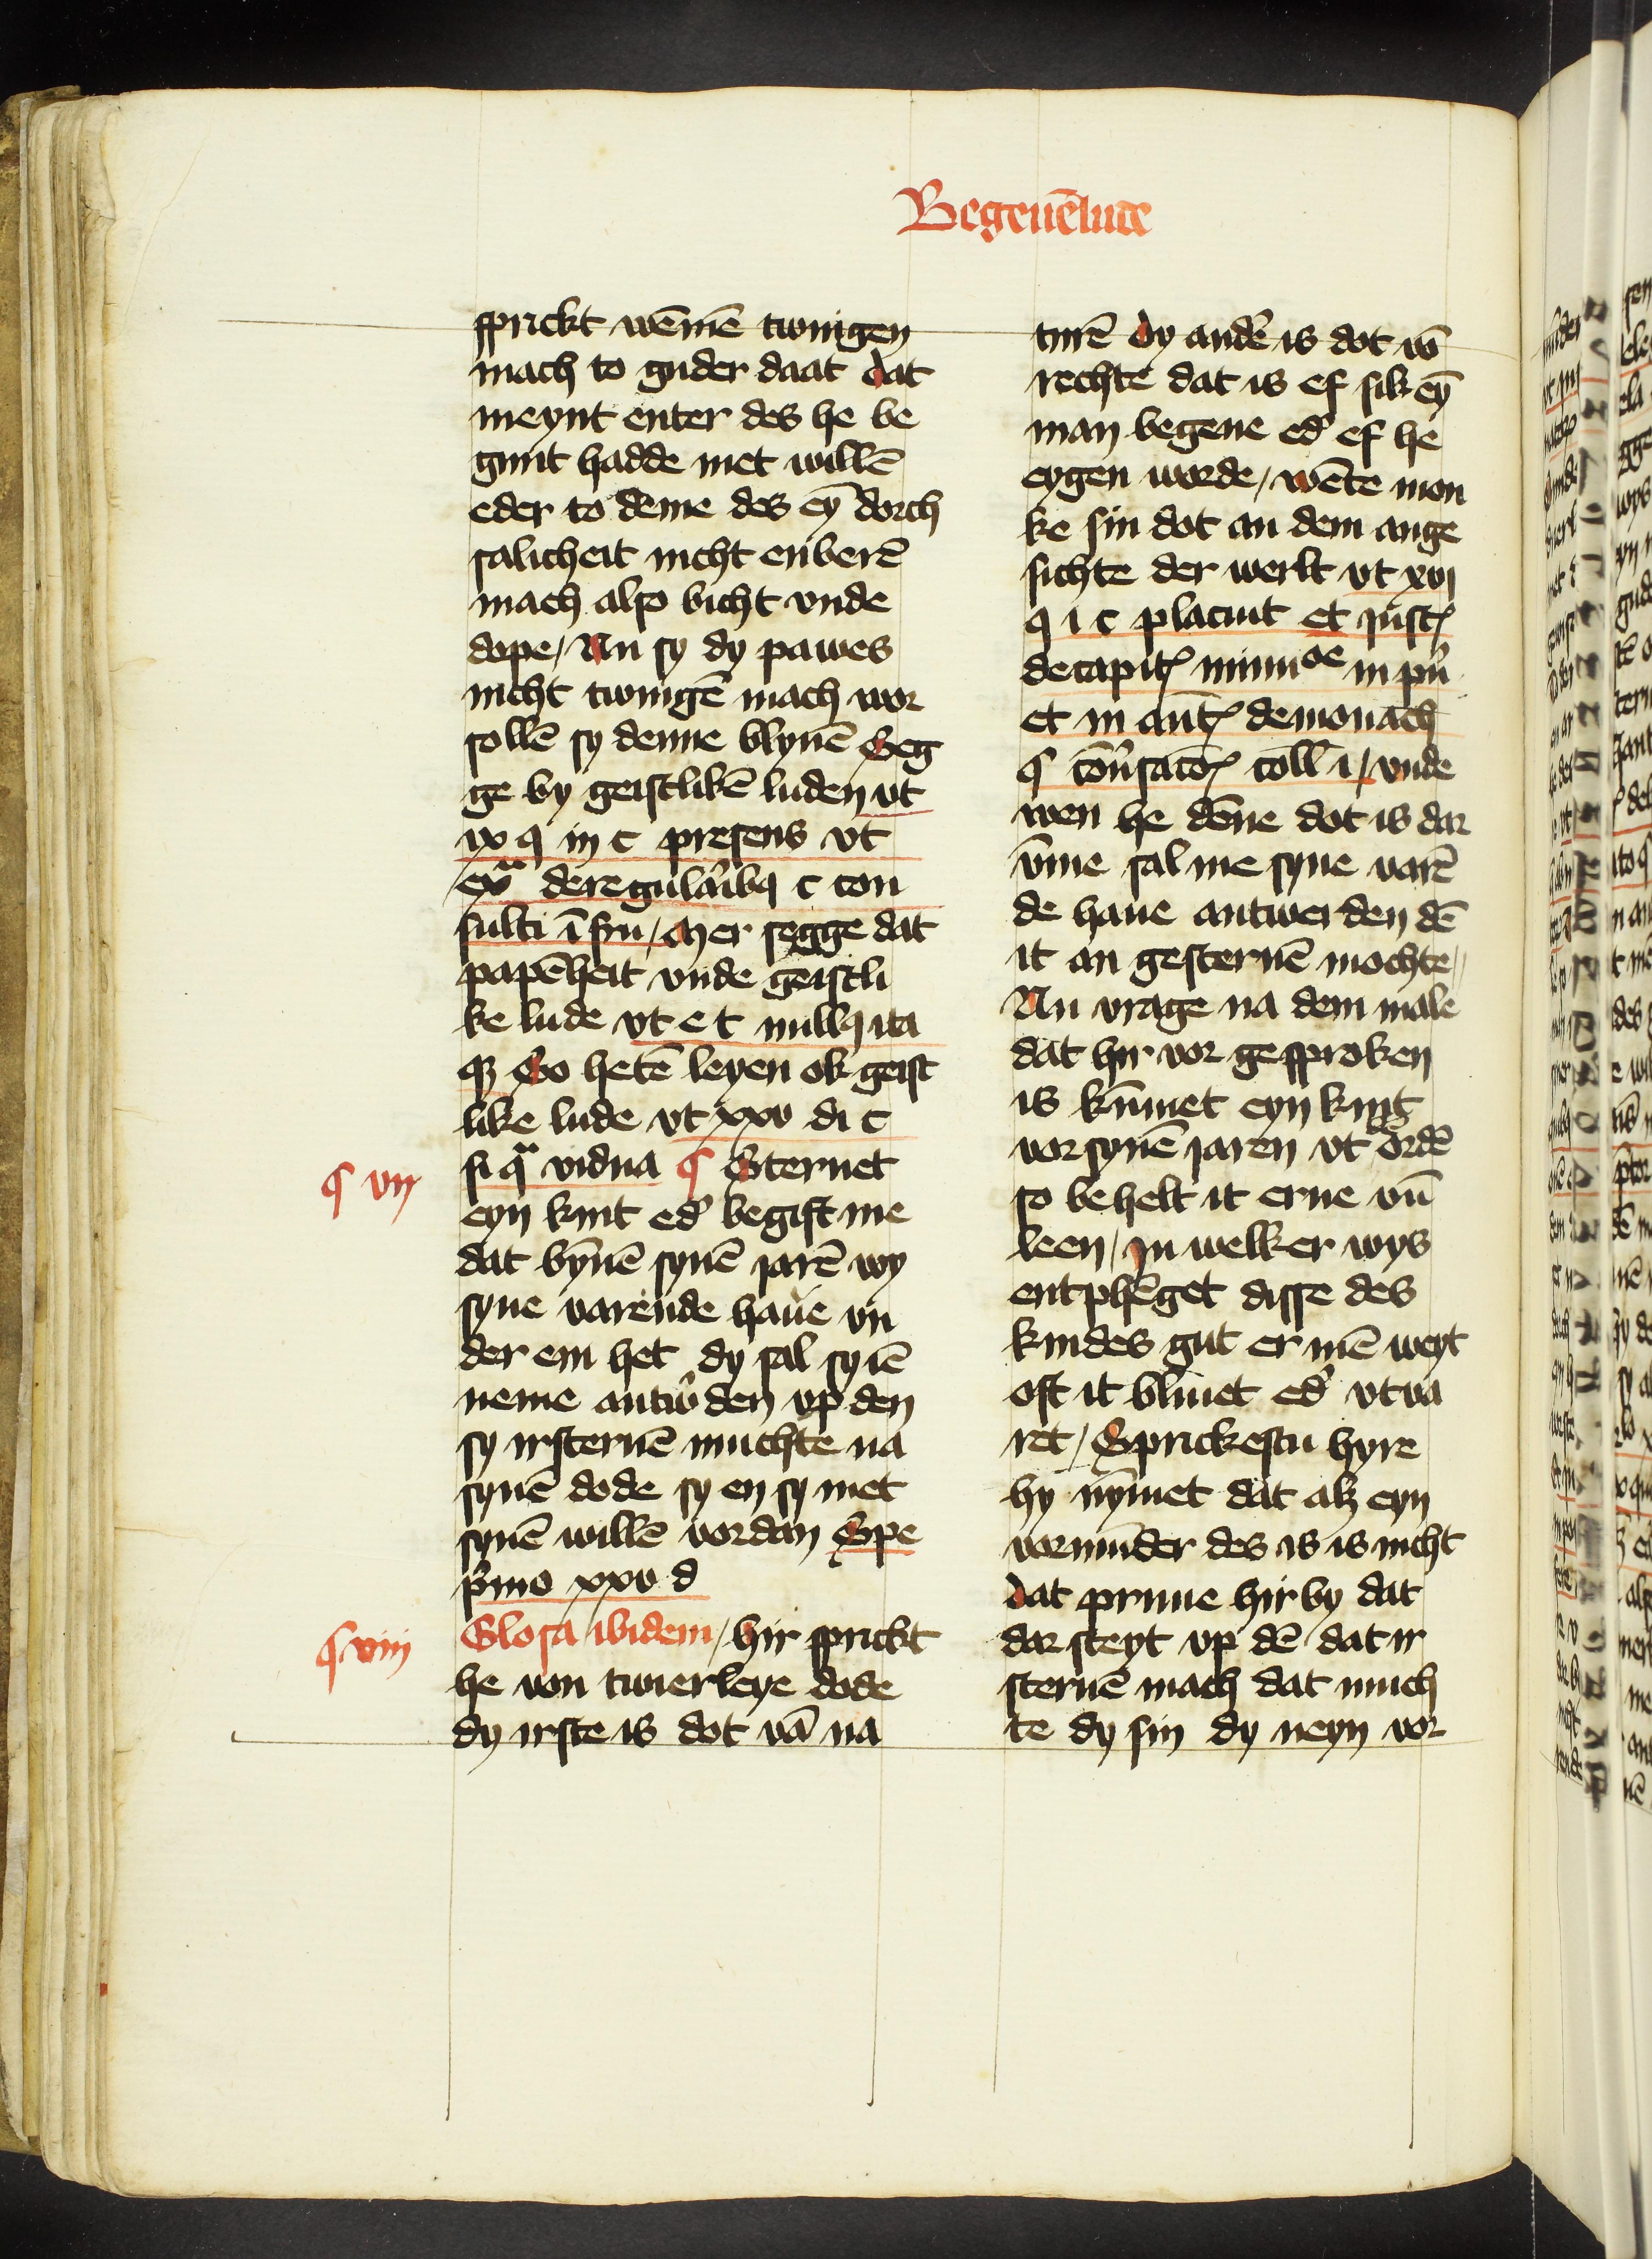 Begeuēlude
sprickt wēmē twingen
mach to guder daat dat
meynt enter des he be
gunt hadde met willē
eder to deme des eȳ dorch
salicheit nicht enberē
mach also bicht vnde
dope / Nu sy dy pawes
nicht twingē mach wor
sollē sy denne blyuē Seg
ge by geistlikē luden vt
ix q iij c presens vt
exᵃ de regularibꝯ c con
sulti ī fin / Mer segge dat
papēheit vnde geistli
ke lude vt e t nullꝯ ita
qꝫ So hetē leyen ok geist
like lude vt xxv di c
si qᵃ vidua ¶ Steruet
¶ vij
eyn kint ed' begift me
dat bȳnē synē jarē wy
syne varende haue vn
der em het dy sal sy iē
neme antw'den vp den
sy irsteruē muchte na
synē dode sy en sy met
synē willē vordan Spe
p'mo xxv d
Glosa ibidem / hir sprickt
¶ viij
he von twierleye dode
dy irste is dot vā na
turē dy andē is dot vō
rechte dat is ef sik eȳ
man begeue ed' ef he
eygen worde / wēte mon
ke sin dot an dem ange
sichte der werlt vt xvj
q i c placuit et Jnst
de capit minuoe in pn̄
et in aut de monach
¶ cōusacō coll i / vnde
wen he dēne dot is dar
v̄me sal me syne varē
de haue antwerden dē
it an gesteruē mochte /
Nu vrage na dem male
dat hir vor gesproken
is kūmet eyn kint
vor synē jaren vt ordē
so behelt it erue vn̄
leen / Jn welker wys
entphēget disse des
kindes gut er mē weyt
oft it bliuet ed' vtva
ret / Sprickestu hyre
hy nȳmet dat alz eyn
vormūder des is is nicht
dat pruue hir by dat
dar steyt vp dē dat ir
steruē mach dat much
te dy sin dy neyn vor